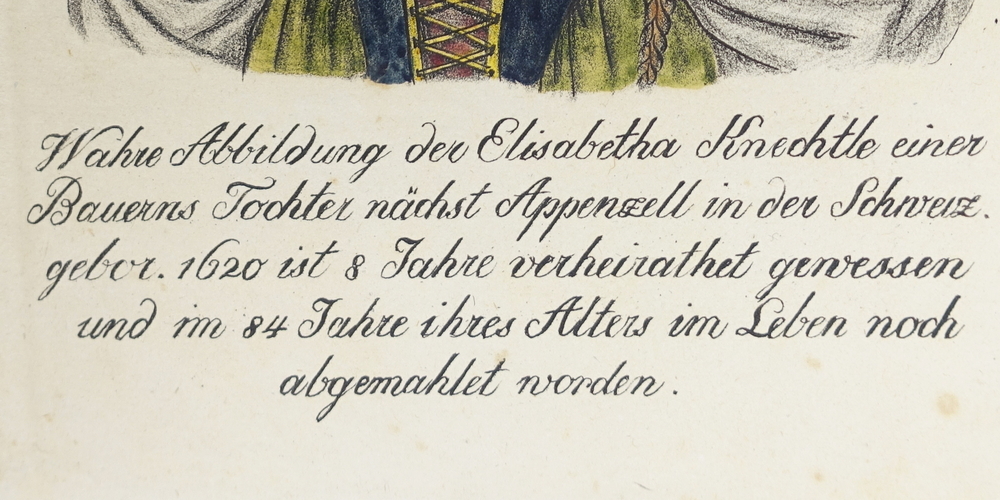 Wahre Abbildung der Elisabetha Knechtle einer
Bauerns Tochter nächst Appenzell in der Schweiz.
gebor. 1620 ist 8 Jahre verheirathet gewessen
und im 84 Jahre ihres Alters im Leben noch
abgemahlet worden.